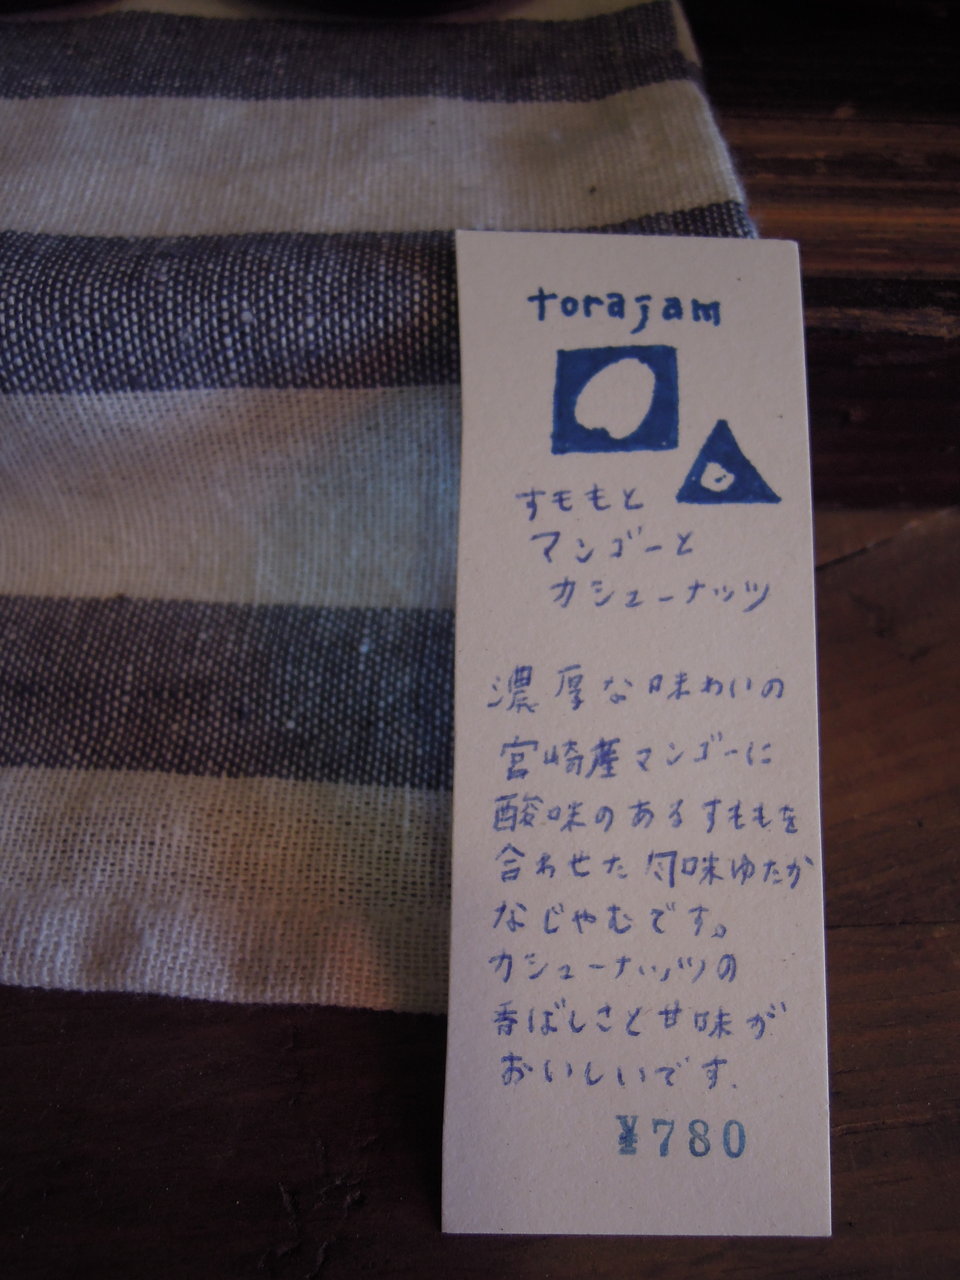 torajam
すももと
マンゴーと
カシューナッツ
濃厚な味わいの
宮崎産マンゴーに
酸味のあるすももを
合わせた風味ゆたか
なじゃむです。
カシューナッツの
香ばしさと甘味が
おいしいです.
¥780